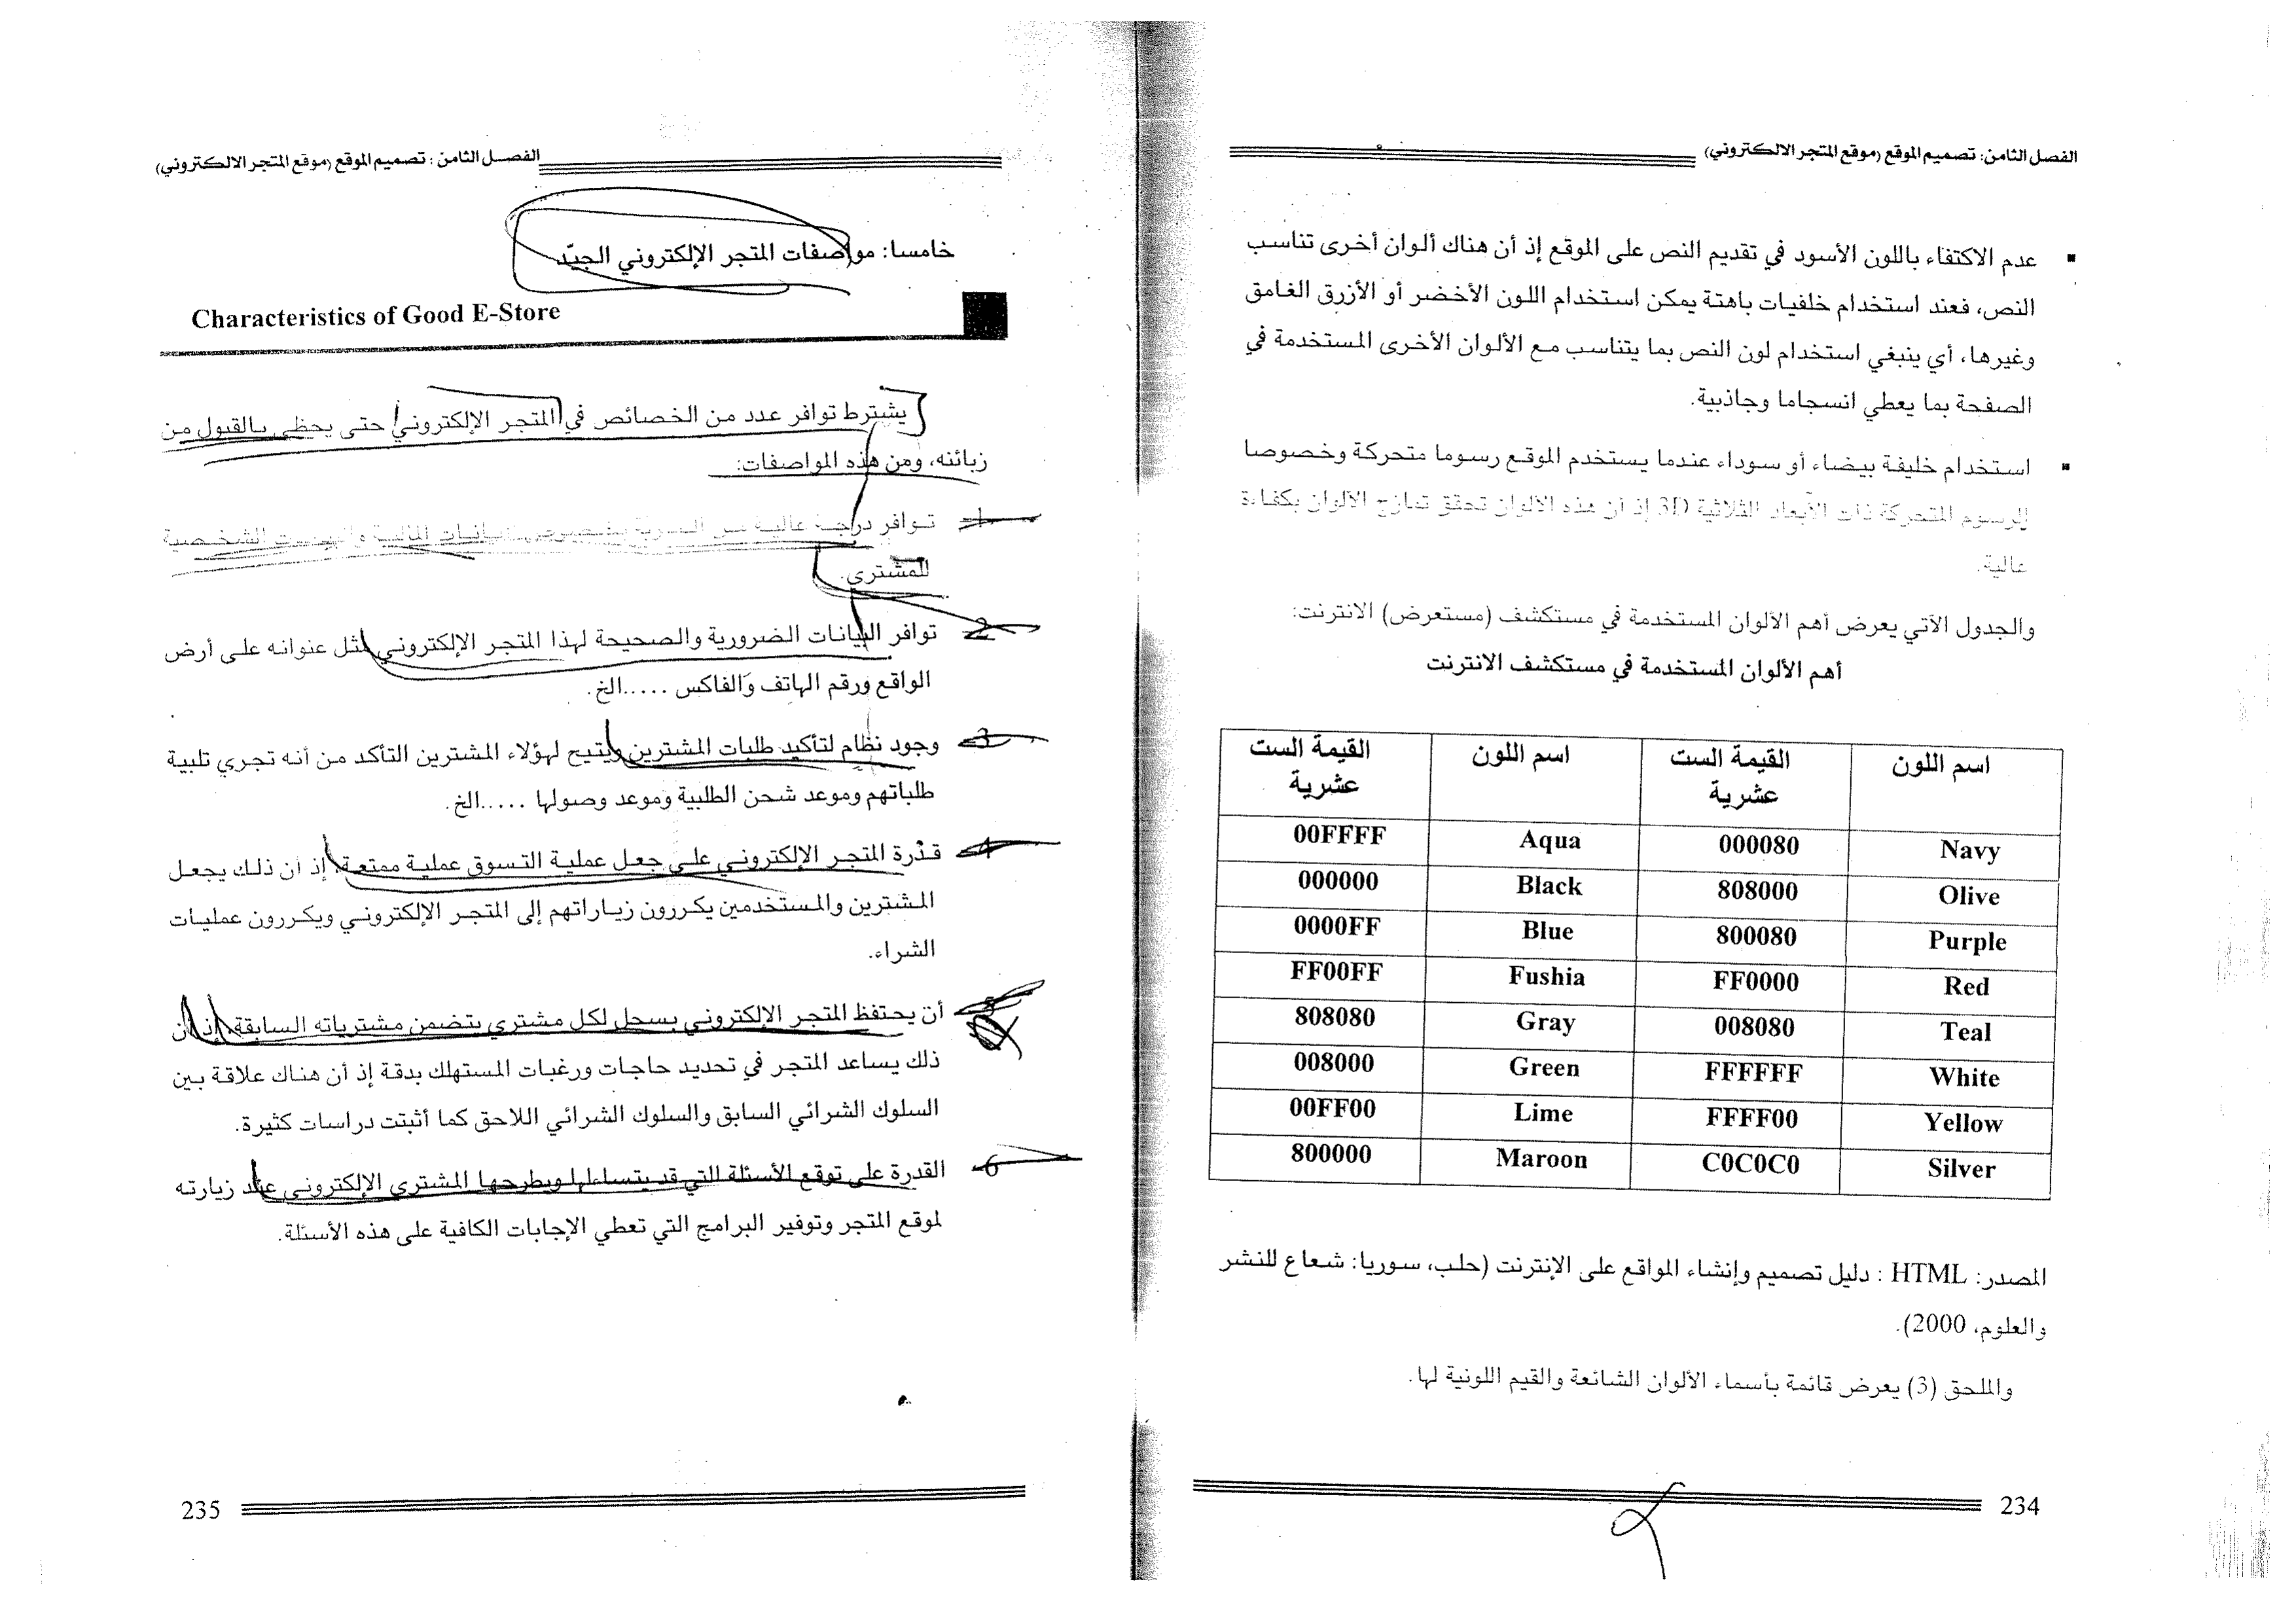 الفصل الثامن: تصميم الموقع (موقع المتجر الالكتروني)
▪ عدم الاكتفاء باللون الأسود في تقديم النص على الموقع إذ أن هناك ألوان أخرى تناسب
النص، فعند استخدام خلفيات باهتة يمكن استخدام اللون الأخضر أو الأزرق الغامق
وغيرها، أي ينبغي استخدام لون النص بما يتناسب مع الألوان الأخرى المستخدمة في
الصفحة بما يعطي انسجاما وجاذبية.
▪ استخدام خليفة بيضاء أو سوداء عندما يستخدم الموقع رسوما متحركة وخصوصا
الرسوم المتحركة ذات الأبعاد الثلاثية 3D إذ أن هذه الألوان تحقق تمازج الألوان بكفاءة
عالية.
والجدول الآتي يعرض أهم الألوان المستخدمة في مستكشف (مستعرض) الانترنت:
أهم الألوان المستخدمة في مستكشف الانترنت
اسم اللون القيمة الست عشرية اسم اللون القيمة الست عشرية
Navy 000080 Aqua 00FFFF
Olive 808000 Black 000000
Purple 800080 Blue 0000FF
Red FF0000 Fushia FF00FF
Teal 008080 Gray 808080
White FFFFFF Green 008000
Yellow FFFF00 Lime 00FF00
Silver C0C0C0 Maroon 800000
المصدر: HTML : دليل تصميم وإنشاء المواقع على الإنترنت (حلب، سوريا: شعاع للنشر
والعلوم، 2000).
والملحق (3) يعرض قائمة بأسماء الألوان الشائعة والقيم اللونية لها.
234
الفصل الثامن : تصميم الموقع (موقع المتجر الالكتروني)
خامسا: مواصفات المتجر الإلكتروني الجيّد
Characteristics of Good E-Store
يشترط توافر عدد من الخصائص في المتجر الإلكتروني حتى يحظى بالقبول من
زبائنه، ومن هذه المواصفات:
1- توافر درجة عالية من السرية بخصوص البيانات المالية والبيانات الشخصية
للمشتري.
2- توافر البيانات الضرورية والصحيحة لهذا المتجر الإلكتروني مثل عنوانه على أرض
الواقع ورقم الهاتف والفاكس .....الخ.
3- وجود نظام لتأكيد طلبات المشترين ويتيح لهؤلاء المشترين التأكد من أنه تجري تلبية
طلباتهم وموعد شحن الطلبية وموعد وصولها .....الخ.
4- قدرة المتجر الإلكتروني على جعل عملية التسوق عملية ممتعة، إذ أن ذلك يجعل
المشترين والمستخدمين يكررون زياراتهم إلى المتجر الإلكتروني ويكررون عمليات
الشراء.
5- أن يحتفظ المتجر الإلكتروني بسجل لكل مشتري يتضمن مشترياته السابقة، إذ أن
ذلك يساعد المتجر في تحديد حاجات ورغبات المستهلك بدقة إذ أن هناك علاقة بين
السلوك الشرائي السابق والسلوك الشرائي اللاحق كما أثبتت دراسات كثيرة.
6- القدرة على توقع الأسئلة التي قد يتساءلها ويطرحها المشتري الإلكتروني عند زيارته
لموقع المتجر وتوفير البرامج التي تعطي الإجابات الكافية على هذه الأسئلة.
235